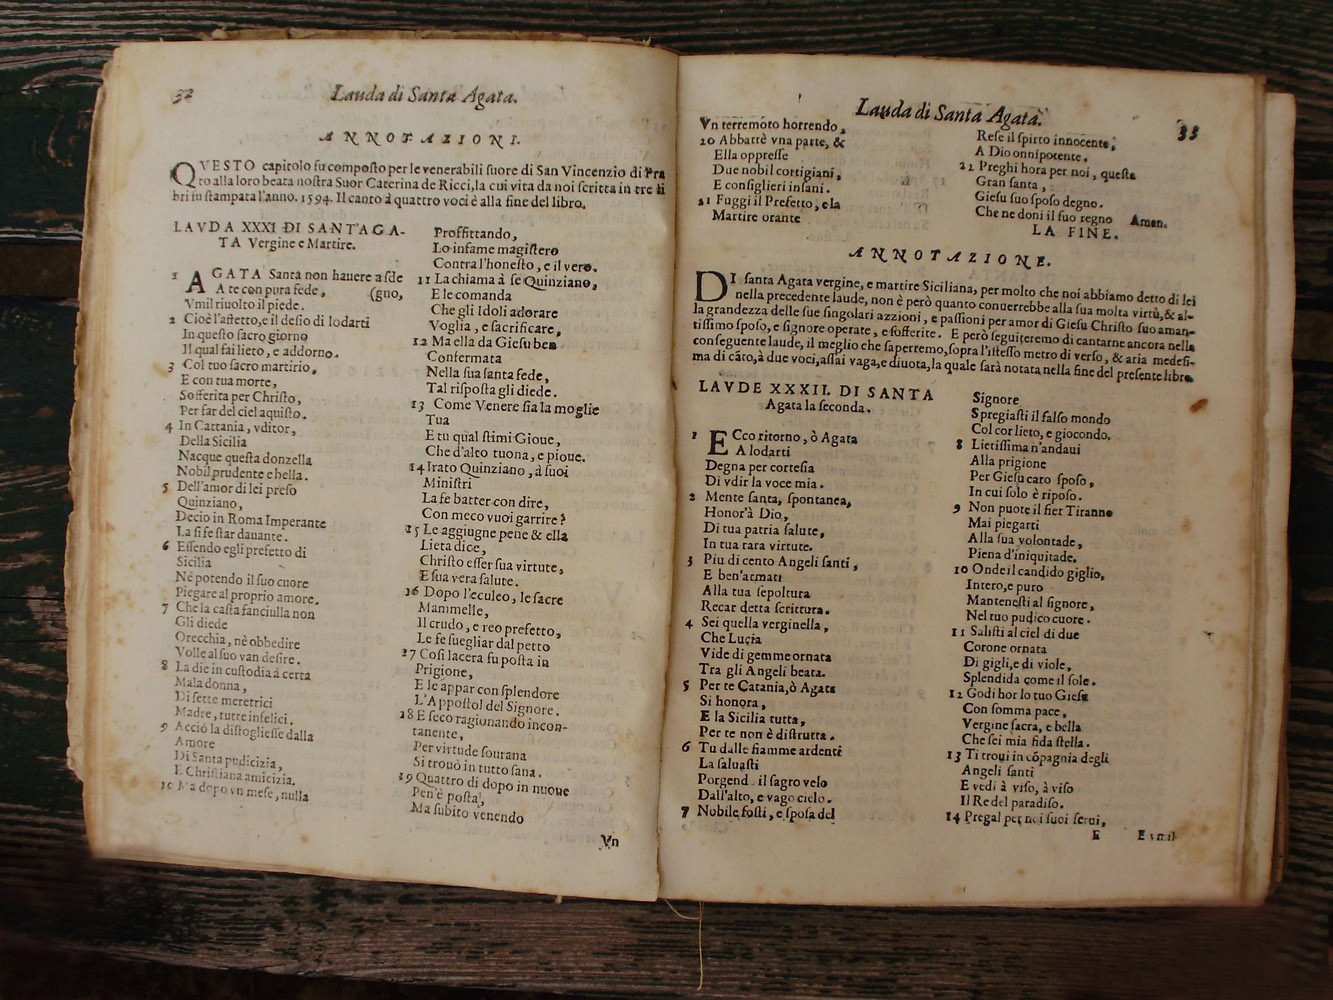 32
Lauda di Santa Agata.
ANNOTAZIONI.
QVESTO capitolo fu compoſto per le venerabili ſuore di San Vincenzio di Pra
to alla loro beata noſtra Suor Caterina de Ricci, la cui vita da noi ſcritta in tre li
bri fu ſtampata l'anno. 1594. Il canto à quattro voci è alla fine del libro.
LAVDA XXXI DI SANT'AGA-
TA Vergine e Martire.
1 AGATA Santa non hauere a ſde
A te con pura fede, (gno,
Vmil riuolto il piede.
2 Cioè l'affetto, e il deſio di lodarti
In queſto ſacro giorno
Il qual fai lieto, e addorno.
3 Col tuo ſacro martirio,
E con tua morte,
Sofferita per Chriſto,
Per far del ciel aquiſto.
4 In Cattania, vditor,
Della Sicilia
Nacque queſta donzella
Nobil prudente e bella.
5 Dell'amor di lei preſo
Quinziano,
Decio in Roma Imperante
La ſi fe ſtar dauante.
6 Eſſendo egli prefetto di
Sicilia
Nè potendo il ſuo cuore
Piegare al proprio amore.
7 Che la caſta fanciulla non
Gli diede
Orecchia, nè obbedire
Volle al ſuo van deſire.
8 La die in cuſtodia à certa
Mala donna,
Di ſette meretrici
Madre, tutte infelici.
9 Acciò la diſtoglieſſe dalla
Amore
Di Santa pudicizia,
E Chriſtiana amicizia.
10 Ma dopo vn meſe, nulla
Proffittando,
Lo infame magiſtero
Contra l'honeſto, e il vero.
11 La chiama à ſe Quinziano,
E le comanda
Che gli Idoli adorare
Voglia, e ſacrificare,
12 Ma ella da Gieſu ben
Confermata
Nella ſua ſanta fede,
Tal riſpoſta gli diede.
13 Come Venere ſia la moglie
Tua
E tu qual ſtimi Gioue,
Che d'alto tuona, e pioue.
14 Irato Quinziano, à ſuoi
Miniſtri
La fe batter con dire,
Con meco vuoi garrire?
15 Le aggiugne pene & ella
Lieta dice,
Chriſto eſſer ſua virtute,
E ſua vera ſalute.
16 Dopo l'eculeo, le ſacre
Mammelle,
Il crudo, e reo prefetto,
Le fe ſuegliar dal petto
17 Coſi lacera fu poſta in
Prigione,
E le appar con ſplendore
L'Appoſtol del Signore.
18 E ſeco ragionando incon-
tanente,
Per virtude ſourana
Si trouò in tutto ſana.
19 Quattro dì dopo in nuoue
Pen'è poſta,
Ma ſubito venendo
Vn
Lauda di Santa Agata.
33
Vn terremoto horrendo,
20 Abbattè vna parte, &
Ella oppreſſe
Due nobil cortigiani,
E conſiglieri inſani.
21 Fuggì il Prefetto, e la
Martire orante
Reſe il ſpirto innocente,
A Dio onnipotente.
22 Preghi hora per noi, queſta
Gran ſanta,
Gieſu ſuo ſpoſo degno.
Che ne doni il ſuo regno Amen.
LA FINE.
ANNOTAZIONE.
DI ſanta Agata vergine, e martire Siciliana, per molto che noi abbiamo detto di lei
nella precedente laude, non è però quanto conuerrebbe alla ſua molta virtù, & al-
la grandezza delle ſue ſingolari azzioni, e paſſioni per amor di Gieſu Chriſto ſuo aman-
tiſſimo ſpoſo, e ſignore operate, e ſofferite. E però ſeguiteremo di cantarne ancora nella
conſeguente laude, il meglio che ſaperremo, ſopra l'iſteſſo metro di verſo, & aria medeſi-
ma di cāto, à due voci, aſſai vaga, e diuota, la quale ſarà notata nella fine del preſente libro
LAVDE XXXII. DI SANTA
Agata la ſeconda.
1 ECco ritorno, ò Agata
A lodarti
Degna per corteſia
Di vdir la voce mia.
2 Mente ſanta, ſpontanea,
Honor'à Dio,
Di tua patria ſalute,
In tua rara virtute.
3 Piu di cento Angeli ſanti,
E ben'armati
Alla tua ſepoltura
Recar detta ſcrittura.
4 Sei quella verginella,
Che Lucia
Vide di gemme ornata
Tra gli Angeli beata.
5 Per te Catania, ò Agata
Si honora,
E la Sicilia tutta,
Per te non è diſtrutta.
6 Tu dalle fiamme ardenti
La ſaluaſti
Porgend il ſagro velo
Dall'alto, e vago cielo.
7 Nobile foſti, e ſpoſa del
Signore
Spregiaſti il falſo mondo
Col cor lieto, e giocondo.
8 Lietiſſima n'andaui
Alla prigione
Per Gieſu caro ſpoſo,
In cui ſolo è ripoſo.
9 Non puote il fier Tiranno
Mai piegarti
Alla ſua volontade,
Piena d'iniquitade.
10 Onde il candido giglio,
Intero, e puro
Manteneſti al ſignore,
Nel tuo pudico cuore.
11 Saliſti al ciel di due
Corone ornata
Di gigli, e di viole,
Splendida come il ſole.
12 Godi hor lo tuo Gieſu
Con ſomma pace,
Vergine ſacra, e bella
Che ſei mia fida ſtella.
13 Ti troui in cōpagnia degli
Angeli ſanti
E vedi à viſo, à viſo
Il Re del paradiſo.
14 Pregal per noi ſuoi ſerui,
E